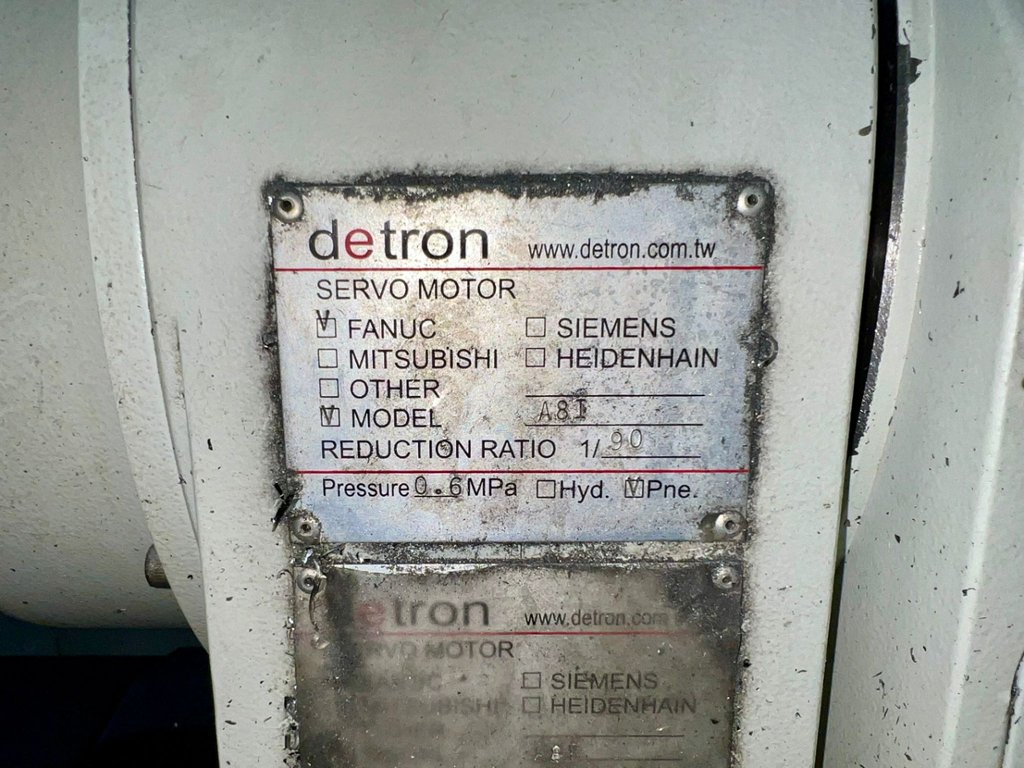 detron www.detron.com.tw
SERVO MOTOR
☑ FANUC ☐ SIEMENS
☐ MITSUBISHI ☐ HEIDENHAIN
☐ OTHER
☑ MODEL A8I
REDUCTION RATIO 1/90
Pressure 0.6MPa ☐Hyd. ☑Pne.
detron www.detron.com
SERVO MOTOR
FANUC ☐ SIEMENS
MITSUBISHI ☐ HEIDENHAIN